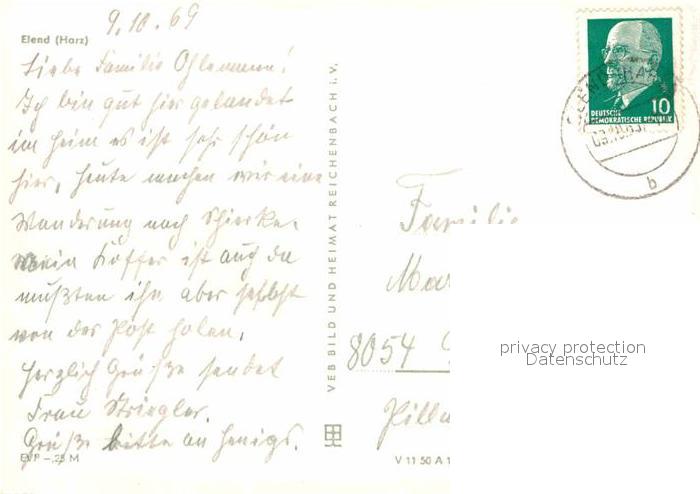 9.10.69
Elend (Harz)
Liebe Familie Ohlemann!
Ich bin gut hier gelandet
im Heim es ist sehr schön
hier, heute machen wir eine
Wanderung nach Schierke.
mein Koffer ist auch da
mußten ihn aber selbst
von der Post holen.
Herzlich Grüße sendet
Frau Striegler.
Grüße bitte an Henigs.
EVP -,25 M
VEB BILD UND HEIMAT REICHENBACH i. V.
V 11 50 A 1
DEUTSCHE
DEMOKRATISCHE REPUBLIK
10
ELEND
b
Familie
Mar
8054
Pilln
privacy protection
Datenschutz